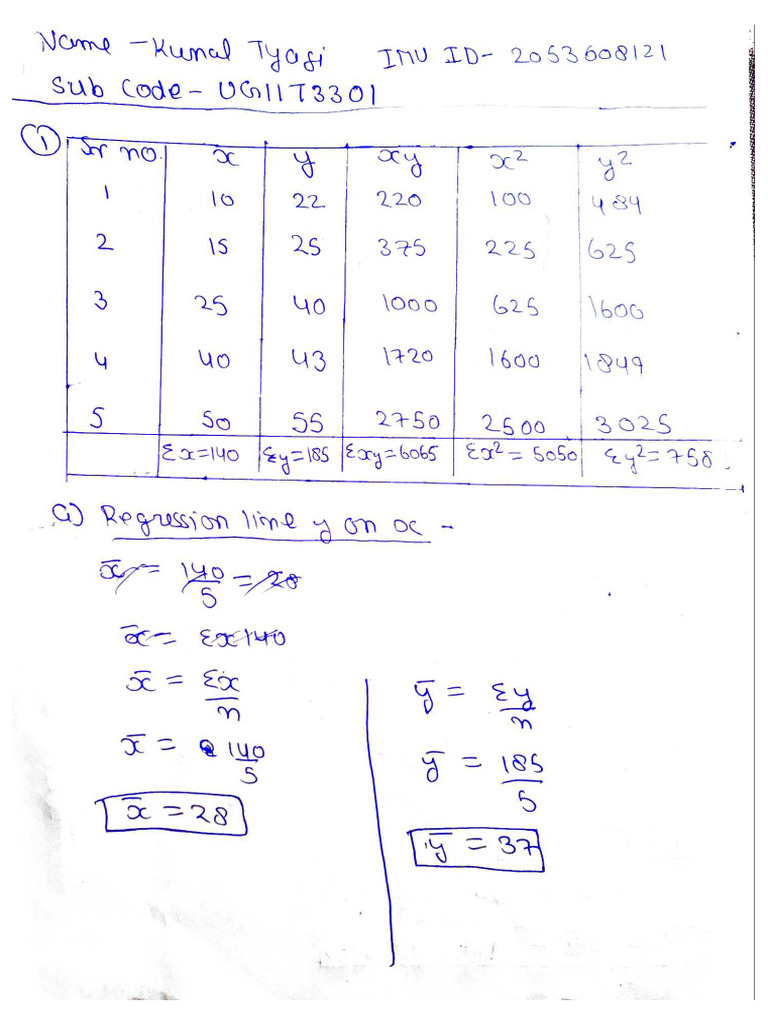 Name - Kunal Tyagi IMU ID- 2053608121
Sub Code - UG11T3301
① Sr no. x y xy x² y²
1 10 22 220 100 484
2 15 25 375 225 625
3 25 40 1000 625 1600
4 40 43 1720 1600 1849
5 50 55 2750 2500 3025
Σx=140 Σy=185 Σxy=6065 Σx²=5050 Σy²=758
a) Regression line y on x -
x̄ = 140/5 = 28
x̄ = Σx140
x̄ = Σx/n
x̄ = 140/5
x̄ = 28
ȳ = Σy/n
ȳ = 185/5
ȳ = 37